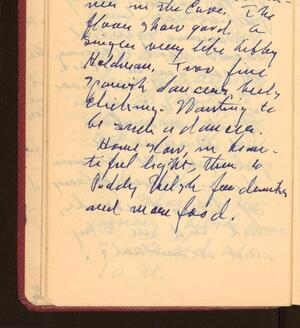 in the Cave. The
floor show good. a
singer very like Libby
Holdman, Two fine
Spanish dancers, heels
clicking. Wanting to
be such a dancer.
Home slow, in beau-
tiful light, then to
Paddy Welsh for drinks
and more food.